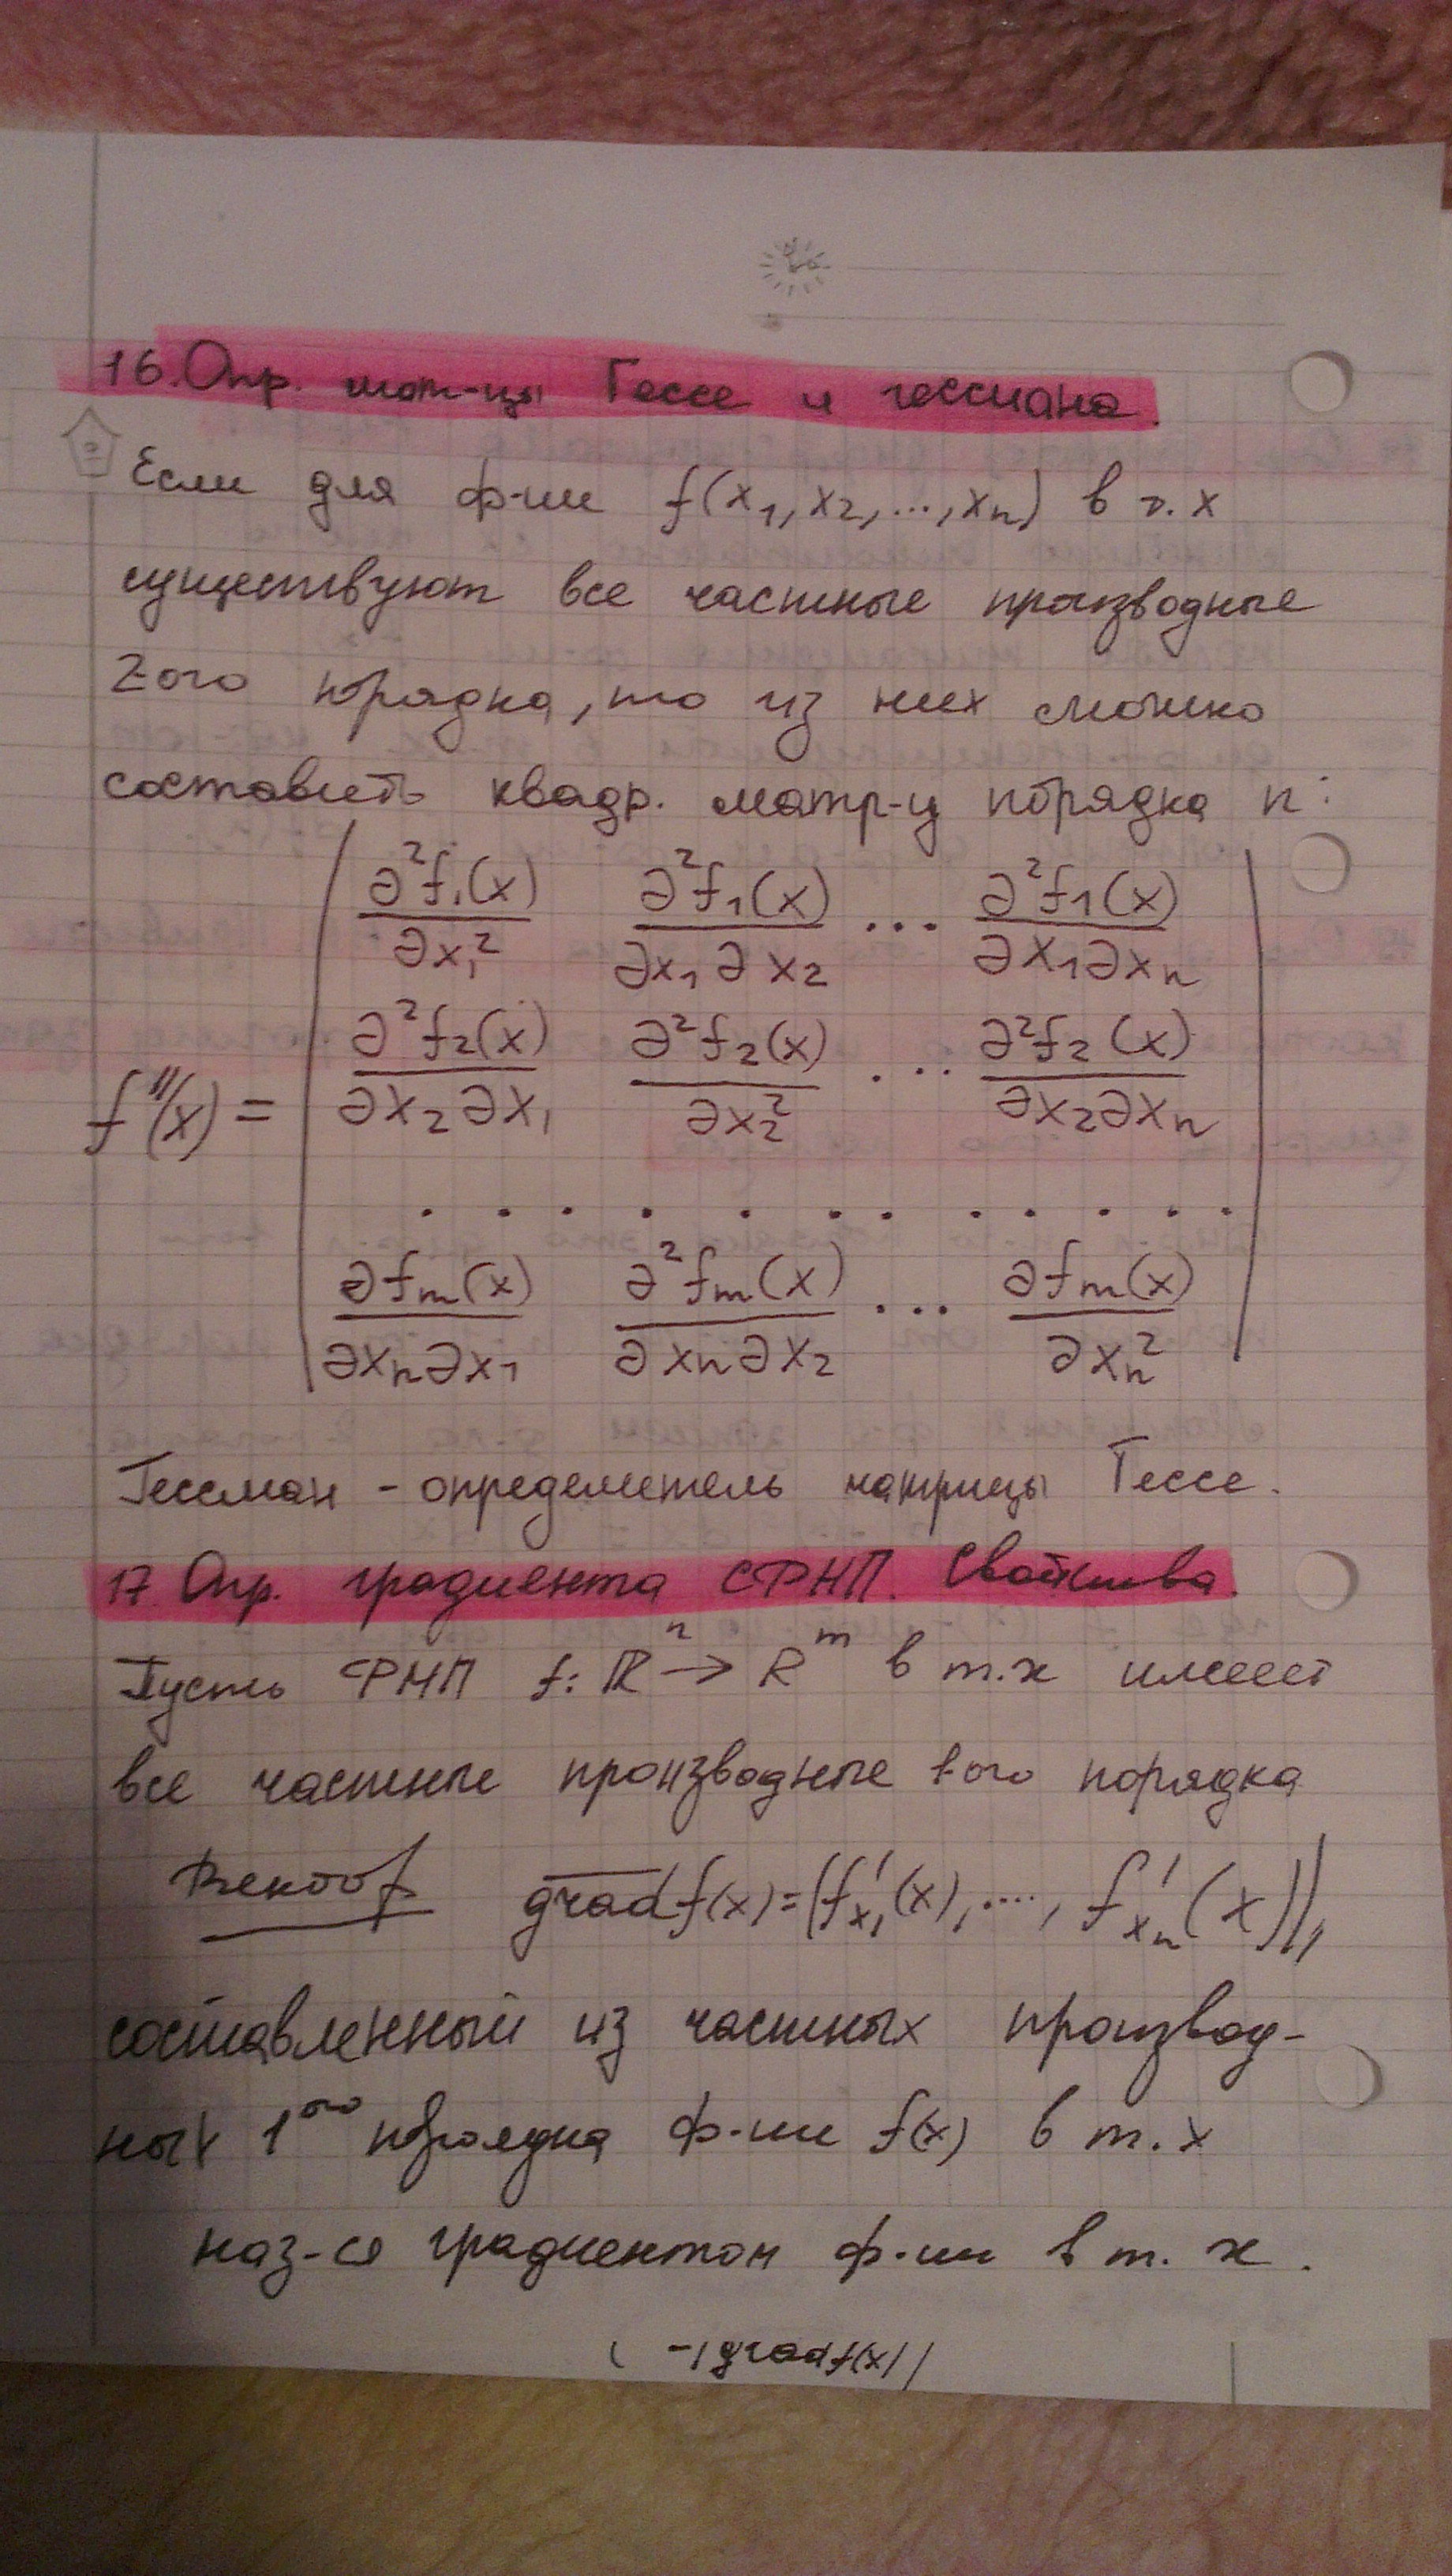 16. Опр. мат-цы Гессе и гессиана.
Если для ф-ии f(x₁, x₂, ..., xₙ) в т. x
существуют все частные производные
2ого порядка, то из них можно
составить квадр. матр-у порядка n:
∂²f₁(x)/∂x₁² ∂²f₁(x)/∂x₁∂x₂ ... ∂²f₁(x)/∂x₁∂xₙ
∂²f₂(x)/∂x₂∂x₁ ∂²f₂(x)/∂x₂² ... ∂²f₂(x)/∂x₂∂xₙ
f''(x) =
. . . . . . . . . . . .
∂fₘ(x)/∂xₙ∂x₁ ∂²fₘ(x)/∂xₙ∂x₂ ... ∂fₘ(x)/∂xₙ²
Гессиан - определитель матрицы Гессе.
17. Опр. градиента СФНП. Свойства.
Пусть ФНП f: ℝⁿ → Rᵐ в т. x имеет
все частные производные 1ого порядка
Вектор grad f(x) = (f'ₓ₁(x), ...., f'ₓₙ(x)),
составленный из частных производ-
ных 1ого порядка ф-ии f(x) в т. x
наз-ся градиентом ф-ии в т. x.
-|grad f(x)|